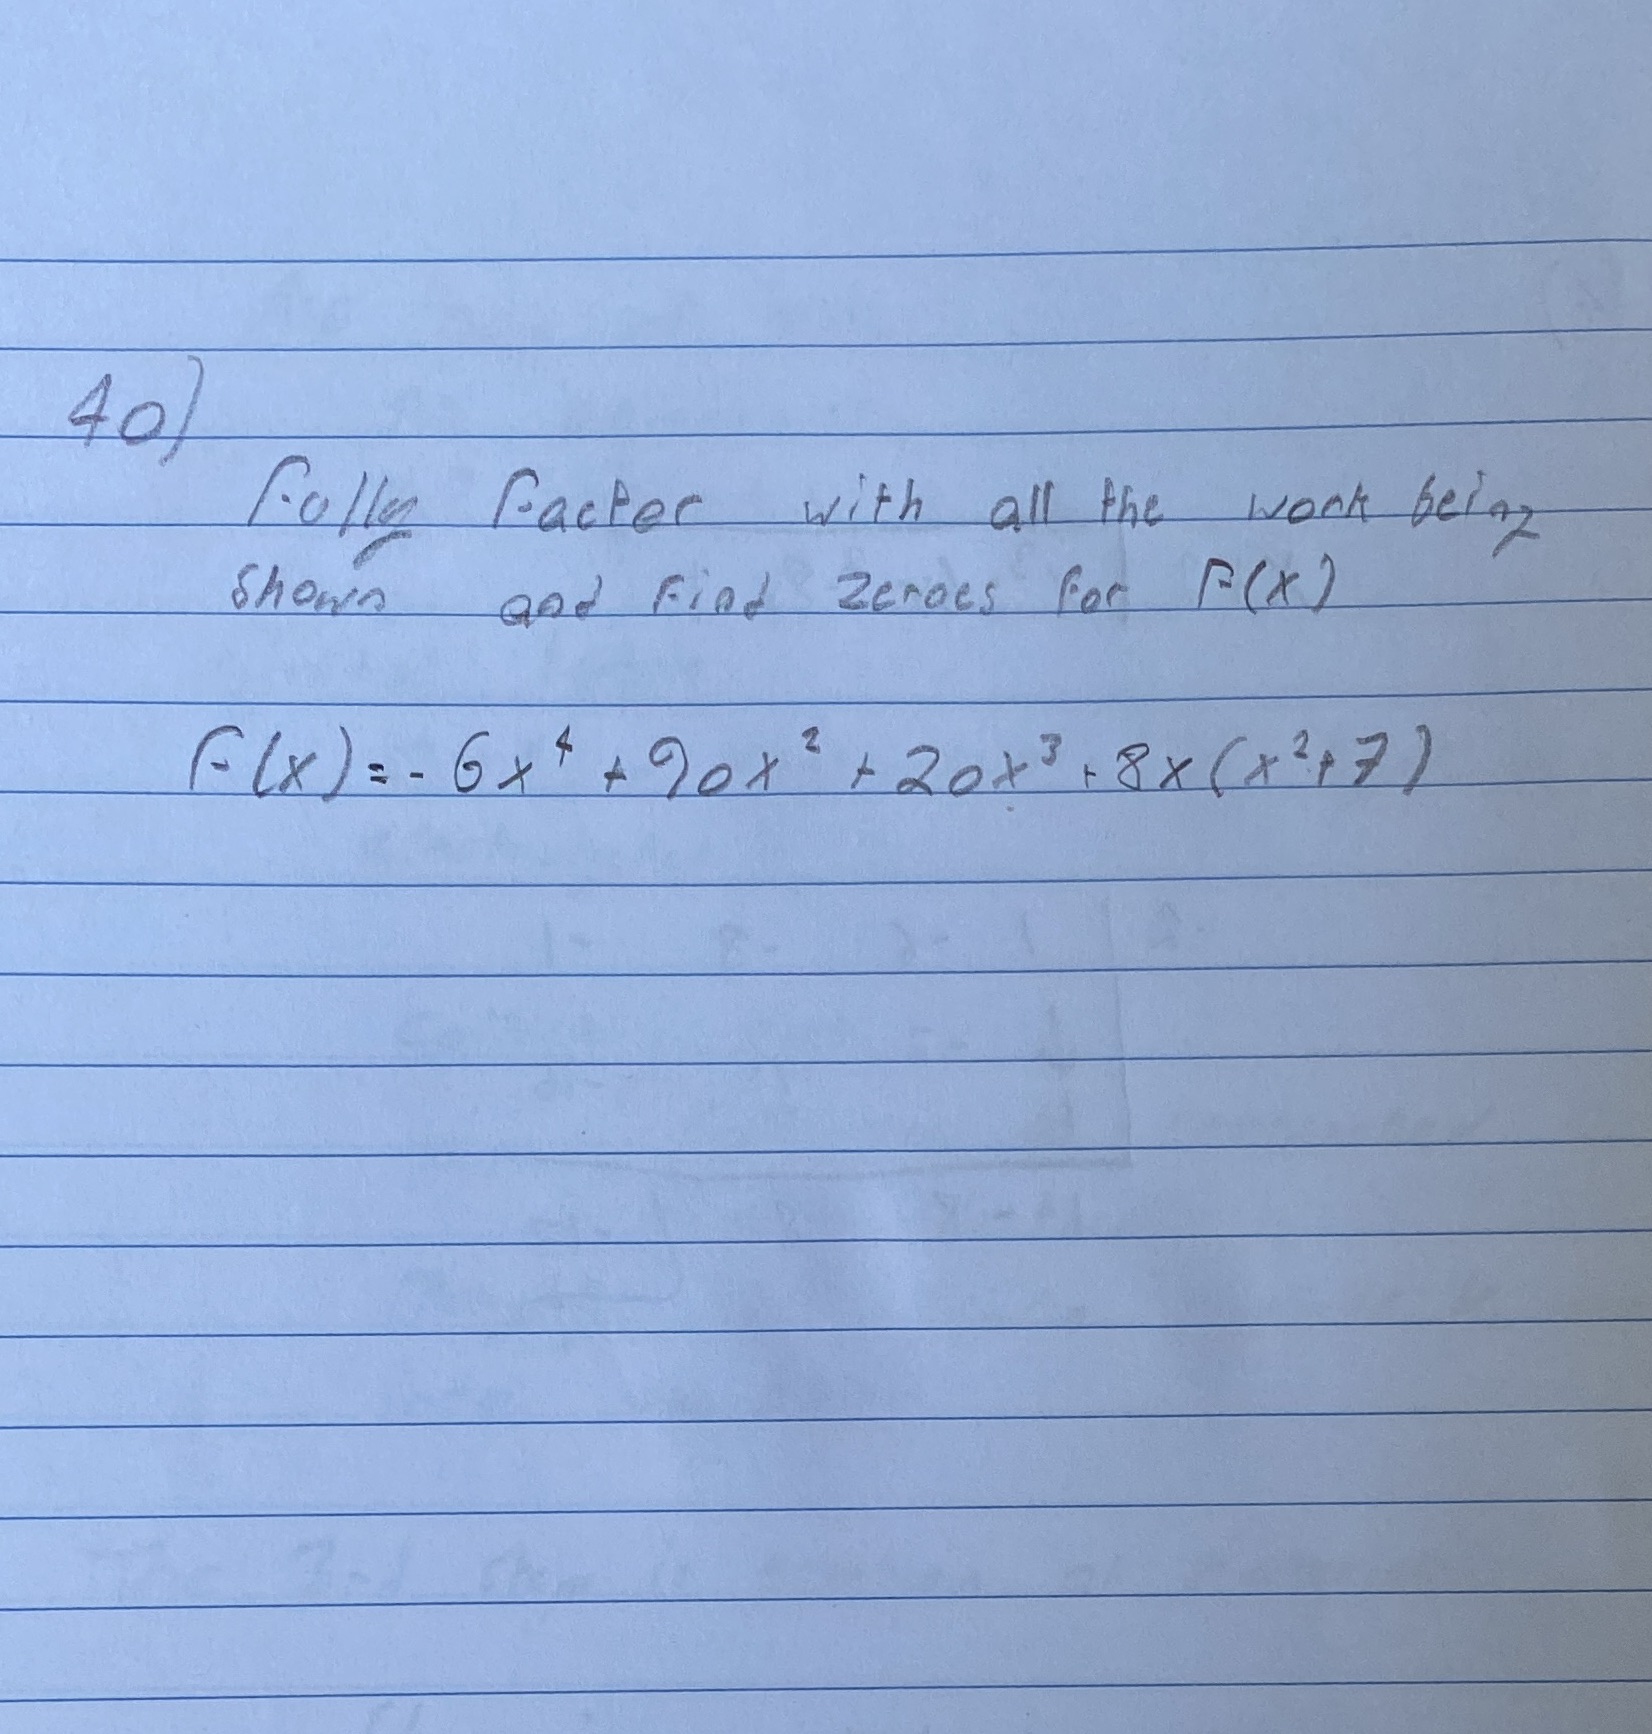 40)
Fully Factor with all the work being
shown and Find zeroes for F(x)
F(x)=-6x⁴+90x²+20x³+8x(x²+7)